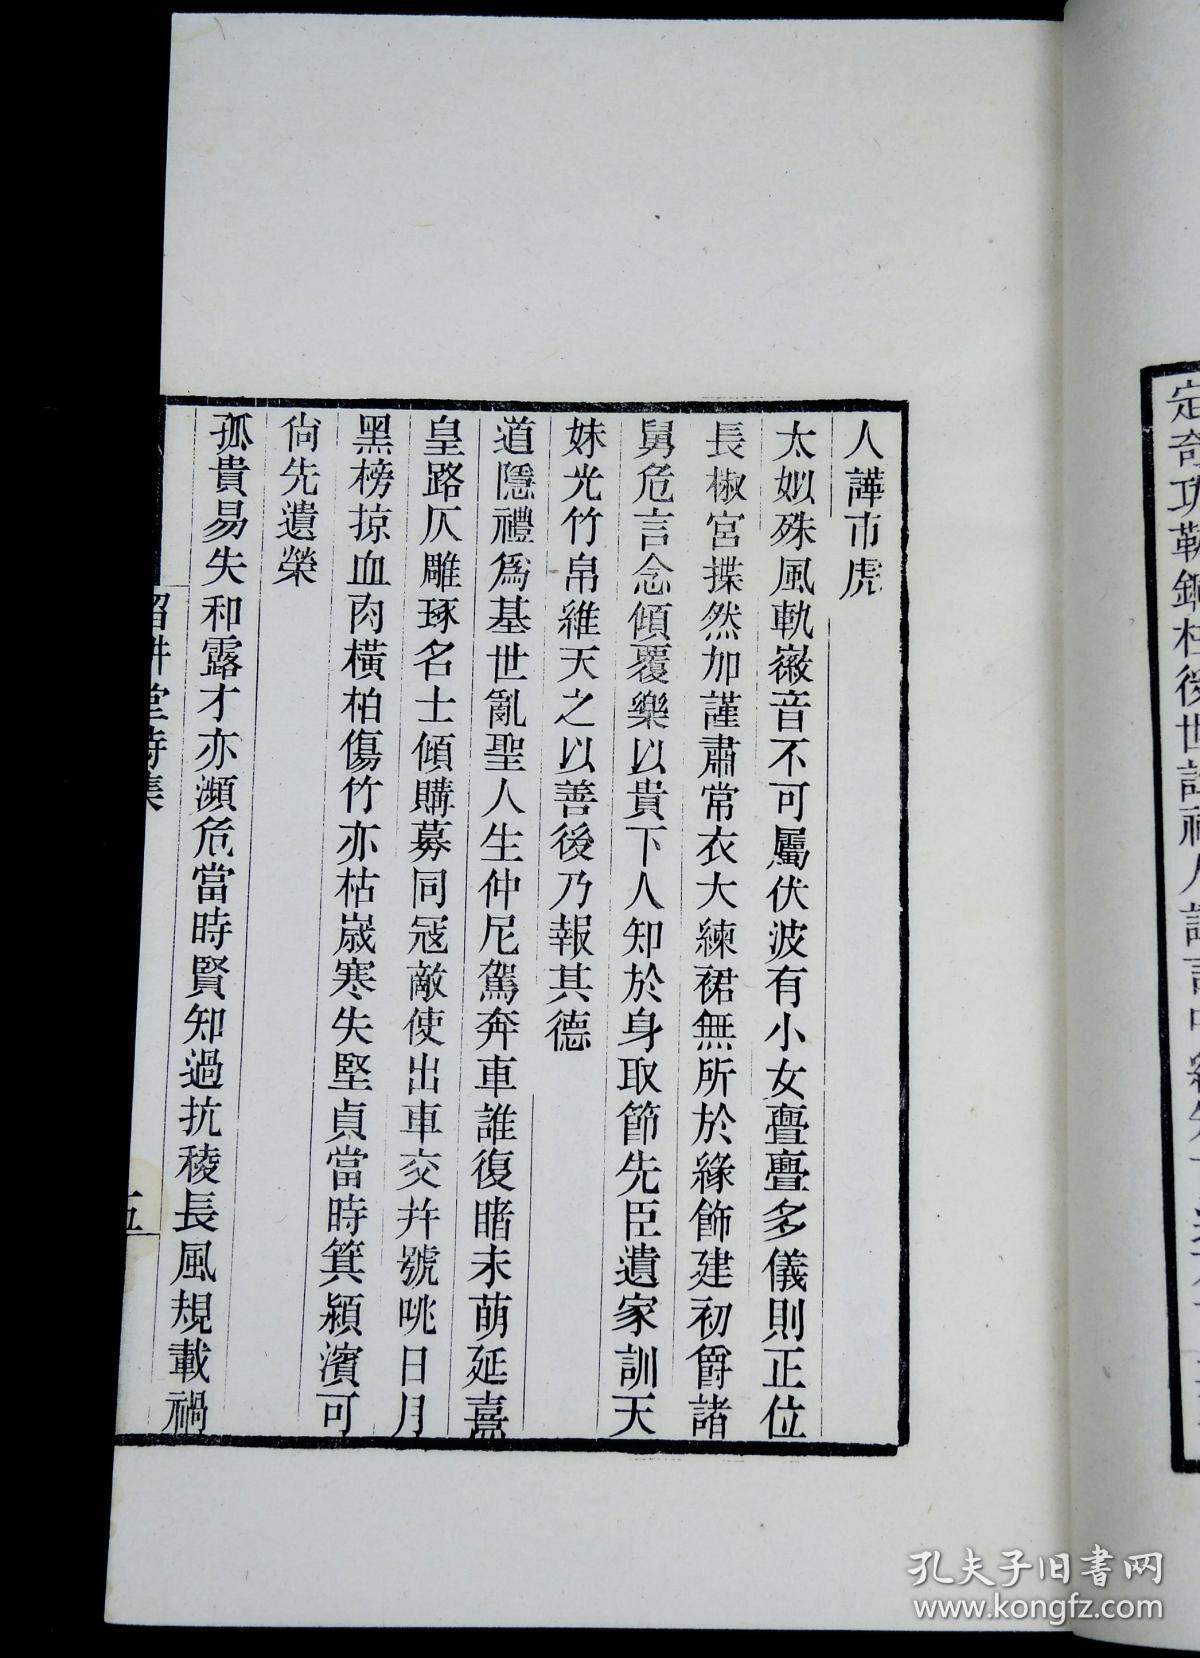 人譁市虎
太姒殊風軌徽音不可屬伏波有小女亹亹多儀則正位
長椒宮揲然加謹肅常衣大練裙無所於緣飾建初爵諸
舅危言念傾覆樂以貴下人知於身取節先臣遺家訓天
妹光竹帛維天之以善後乃報其德
道隱禮爲基世亂聖人生仲尼駕奔車誰復睹未萌延熹
皇路仄雕琢名士傾購募同寇敵使出車交幷號咷日月
黑榜掠血肉橫柏傷竹亦枯歲寒失堅貞當時箕潁濱可
尙先遺榮
孤貴易失和露才亦瀕危當時賢知過抗稜長風規載禍
堂詩集
五
孔夫子旧书网
www.kongfz.com